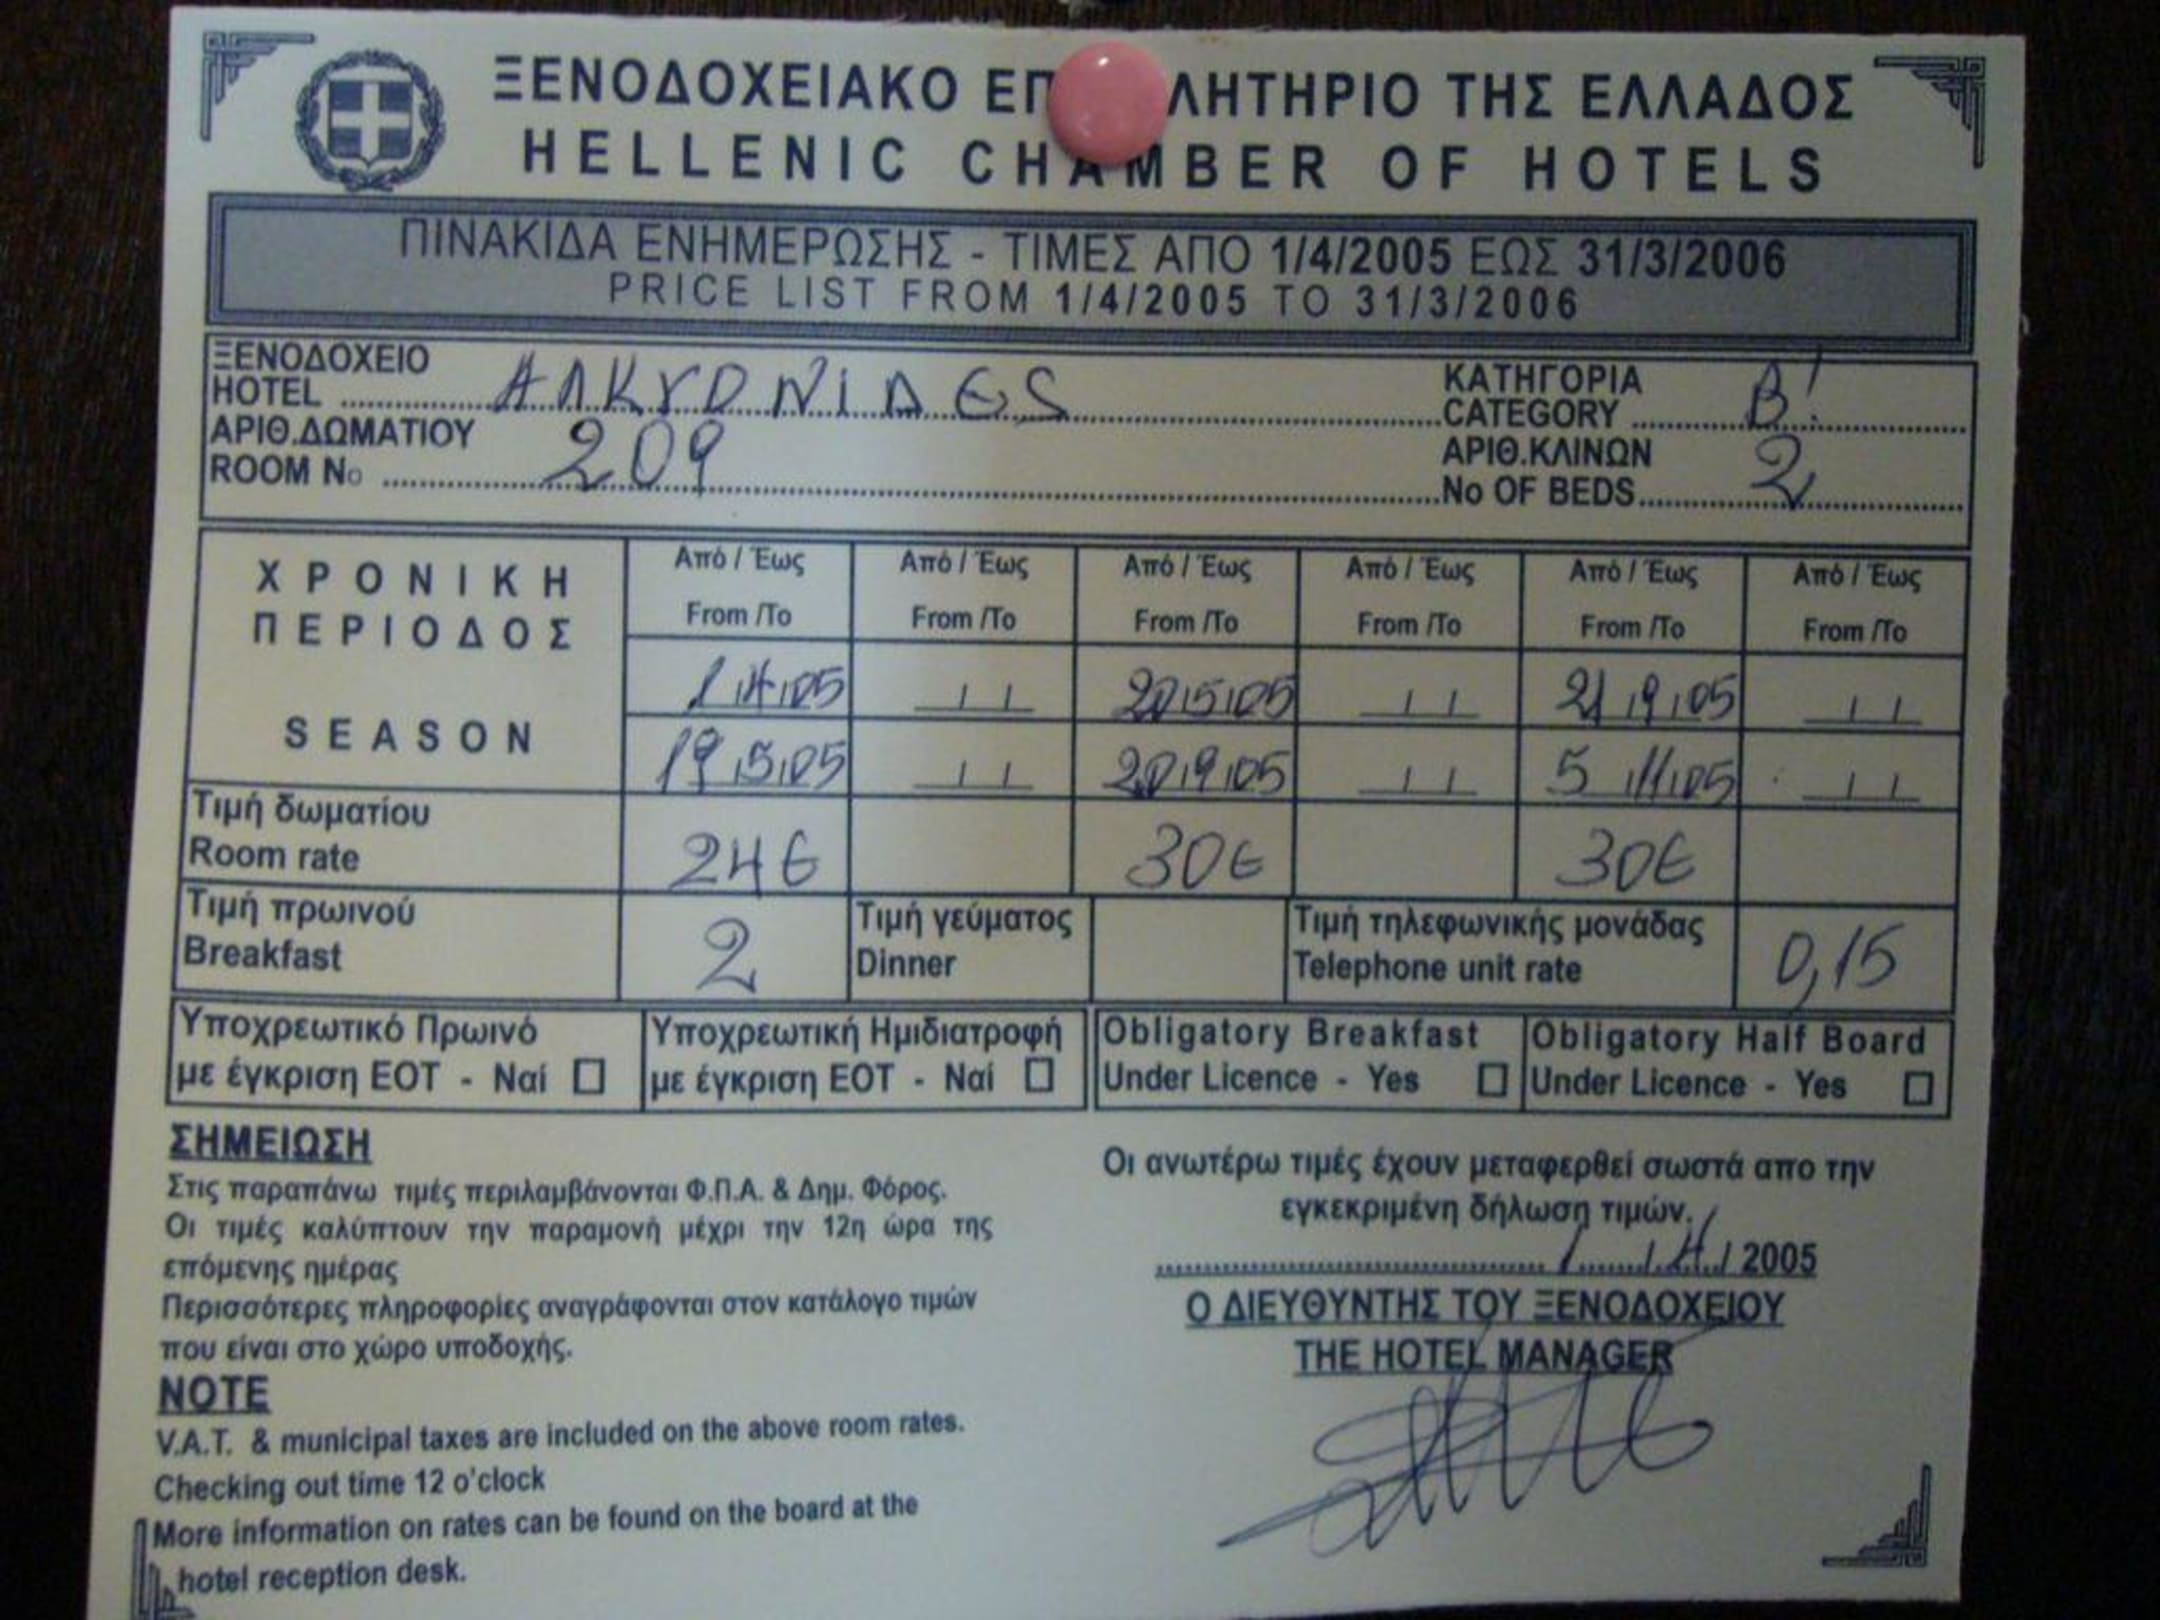 ΞΕΝΟΔΟΧΕΙΑΚΟ ΤΗΣ ΕΛΛΑΔΟΣ
HELLENIC CHAMBER OF HOTELS
ΠΙΝΑΚΙΔΑ ΕΝΗΜΕΡΩΣΗΣ - ΤΙΜΕΣ ΑΠΟ 1/4/2005 ΕΩΣ 31/3/2006
PRICE LIST FROM 1/4/2005 TO 31/3/2006
ΞΕΝΟΔΟΧΕΙΟ
HOTEL ΑΛΚΥΟΝΙΔΕS
ΚΑΤΗΓΟΡΙΑ
CATEGORY Β'
ΑΡΙΘ.ΔΩΜΑΤΙΟΥ
ROOM No 209
ΑΡΙΘ.ΚΛΙΝΩΝ
No OF BEDS 2
ΧΡΟΝΙΚΗ
ΠΕΡΙΟΔΟΣ
SEASON
Από / Έως Από / Έως Από / Έως Από / Έως Από / Έως Από / Έως
From /To From /To From /To From /To From /To From /To
1/4/05 20/5/05 21/9/05
19/5/05 20/9/05 5/11/05
Τιμή δωματίου
Room rate 24€ 30€ 30€
Τιμή πρωινού
Breakfast 2
Τιμή γεύματος
Dinner
Τιμή τηλεφωνικής μονάδας
Telephone unit rate 0,15
Υποχρεωτικό Πρωινό
με έγκριση ΕΟΤ - Ναί
Υποχρεωτική Ημιδιατροφή
με έγκριση ΕΟΤ - Ναί
Obligatory Breakfast
Under Licence - Yes
Obligatory Half Board
Under Licence - Yes
ΣΗΜΕΙΩΣΗ
Στις παραπάνω τιμές περιλαμβάνονται Φ.Π.Α. & Δημ. Φόρος.
Οι τιμές καλύπτουν την παραμονή μέχρι την 12η ώρα της
επόμενης ημέρας
Περισσότερες πληροφορίες αναγράφονται στον κατάλογο τιμών
που είναι στο χώρο υποδοχής.
NOTE
V.A.T. & municipal taxes are included on the above room rates.
Checking out time 12 o'clock
More information on rates can be found on the board at the
hotel reception desk.
Οι ανωτέρω τιμές έχουν μεταφερθεί σωστά απο την
εγκεκριμένη δήλωση τιμών.
1/4/2005
Ο ΔΙΕΥΘΥΝΤΗΣ ΤΟΥ ΞΕΝΟΔΟΧΕΙΟΥ
THE HOTEL MANAGER